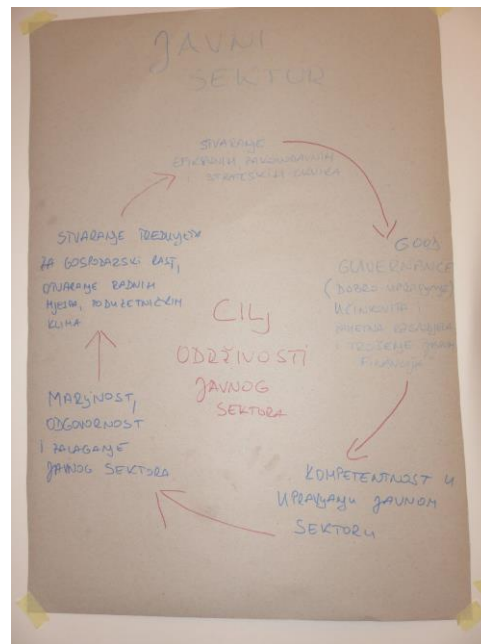 JAVNI
SEKTOR
STVARANJE
ZAKONODAVNIH
I STRATEŠKIH OKVIRA
GOOD
GOVERNANCE
(DOBRO UPRAVLJANJE)
UČINKOVITA I
I TROŠENJE JAVNIH
FINANCIJA
KOMPETENTNOST U
UPRAVLJANJU JAVNOM
SEKTORU
MARLJIVOST,
ODGOVORNOST
I ZALAGANJE
JAVNOG SEKTORA
STVARANJE PREDUVJETA
ZA GOSPODARSKI RAST,
OTVARANJE RADNIH
MJESTA, PODUZETNIČKIH
KLIMA
CILJ
ODRŽIVOSTI
JAVNOG
SEKTORA